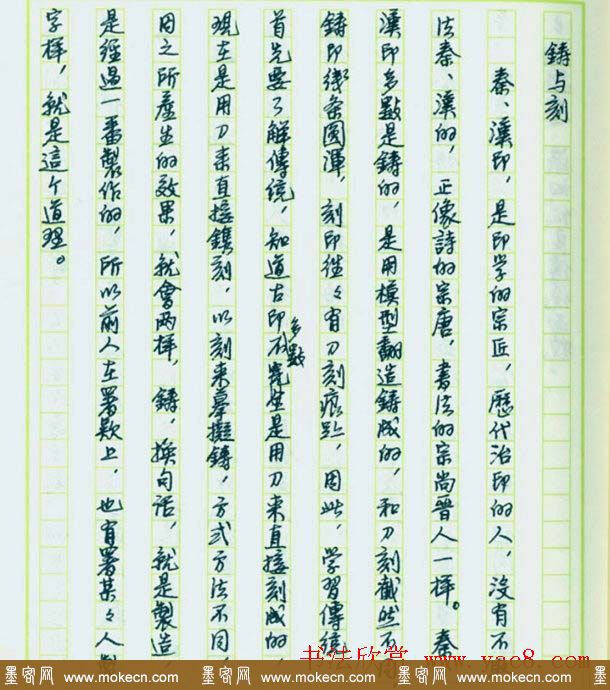 鑄与刻
秦、漢印，是印学的宗匠，歷代治印的人，沒有不
法秦、漢的，正像詩的宗唐，書法的宗尚晉人一样。秦、
漢印多數是鑄的，是用模型翻造鑄成的，和刀刻截然不
鑄印綫条圓渾，刻印往々有刀刻痕跡，因此，学習傳統
首先要了解傳統，知道古印多數不完全是用刀来直接刻成的，
現在是用刀来直接鐫刻，以刻来摹擬鑄，方式方法不同，
因之所產生的效果，就會两样，鑄，換句話，就是製造，
是經過一番製作的，所以前人在署款上，也有署某々人製
字样，就是這个道理。
书法欣赏 www.yac8.com
墨客网 www.mokecn.com 墨客网 www.mokecn.com 墨客网 www.mokecn.com